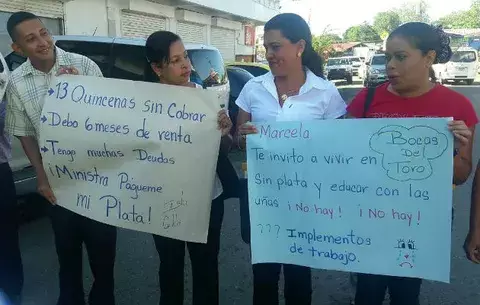 → 13 Quincenas sin Cobrar
→ Debo 6 meses de renta
→ Tengo muchas Deudas
¡Ministra Págueme
mi Plata!
Marcela
Bocas Del
Toro
Te invito a vivir en
sin plata y educar con las
uñas ¡No hay! ¡No hay!
??? Implementos
de trabajo.